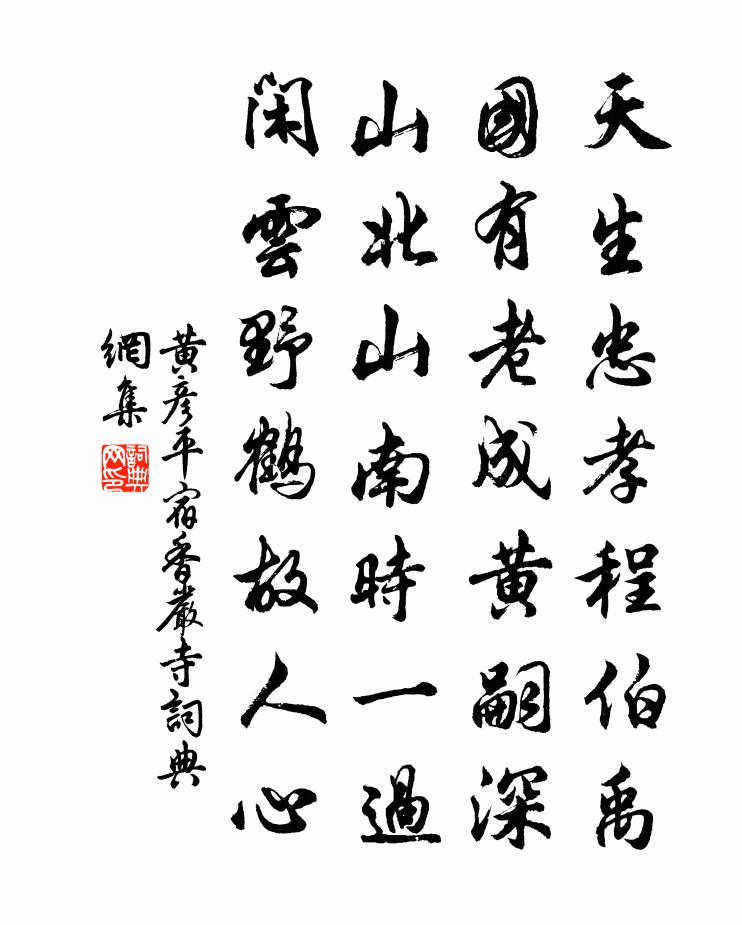 天生忠孝程伯禹
國有老成黄嗣深
山北山南時一過
閑雲野鶴故人心
黄彦平宿香嚴寺詞典
網集
詞典
网印